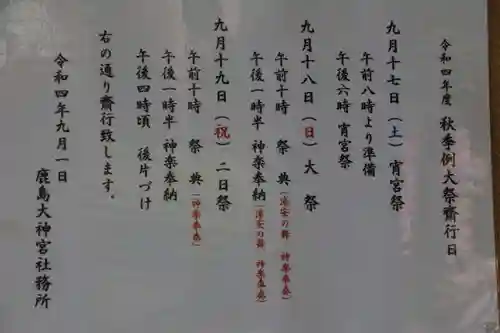 令和四年度 秋季例大祭齋行日
九月十七日（土）宵宮祭
午前八時より準備
午後六時 宵宮祭
九月十八日（日）大 祭
午前十時 祭 典（浦安の舞 神楽奉奏）
午後一時半 神楽奉納（浦安の舞 神楽奉奏）
九月十九日（祝）二日祭
午前十時 祭 典（神楽奉奏）
午後一時半 神楽奉納
午後四時頃 後片づけ
右の通り齋行致します。
令和四年九月一日
鹿島大神宮社務所